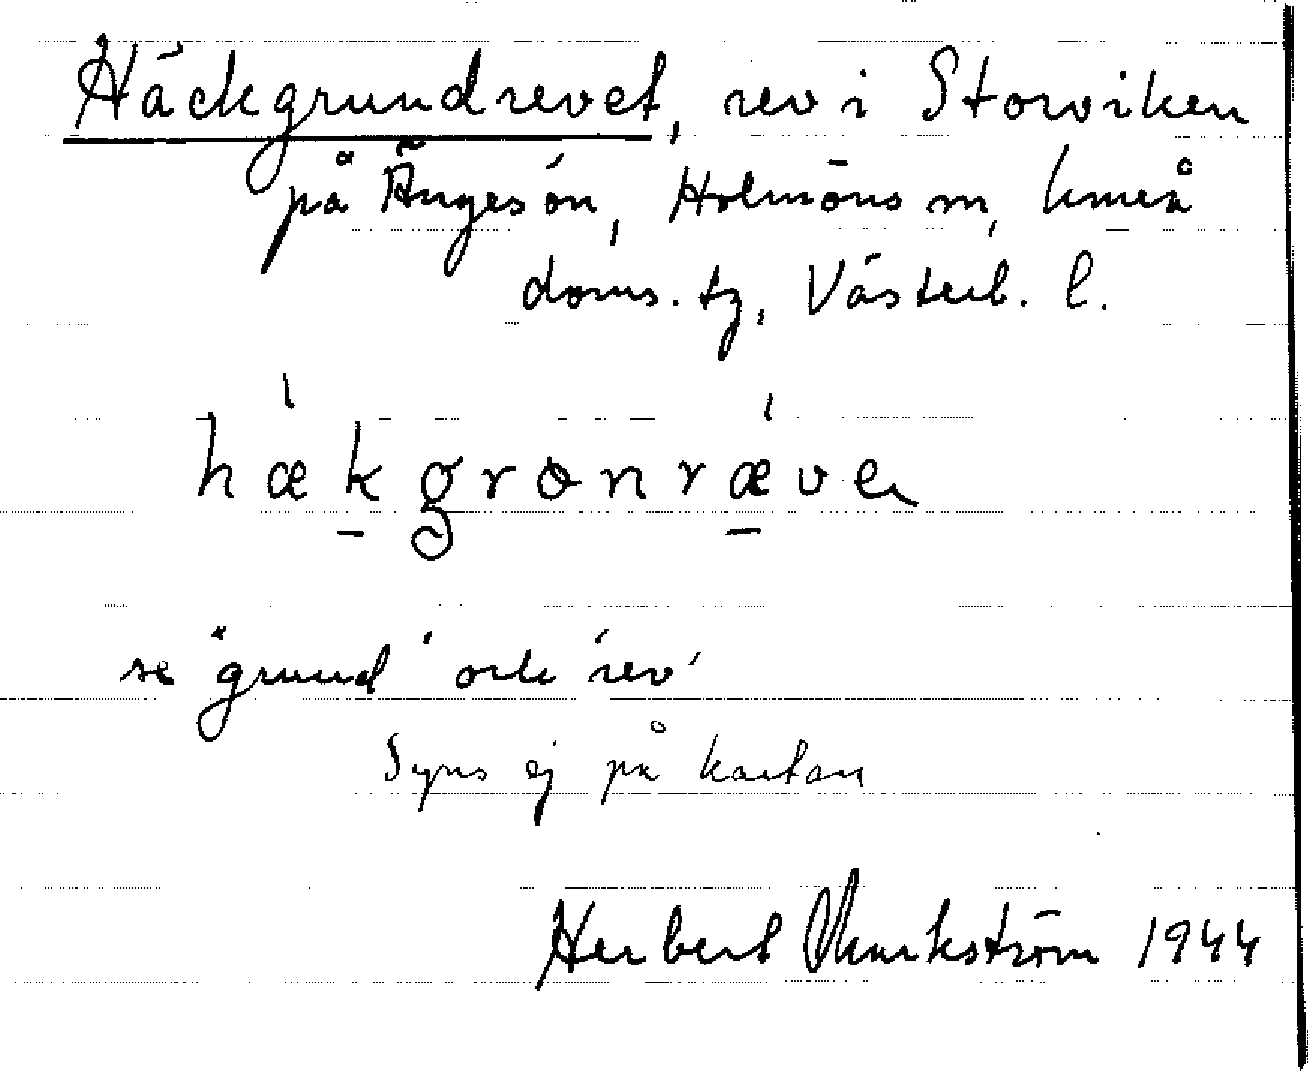 Häckgrundrevet, rev i Storviken
på Ängesön, Holmöns sn, Umeå
doms. tg, Västerb. l.
hækgrɷnræve
se "grund" och "rev"
Syns ej på kartan
Herbert Markström 1944